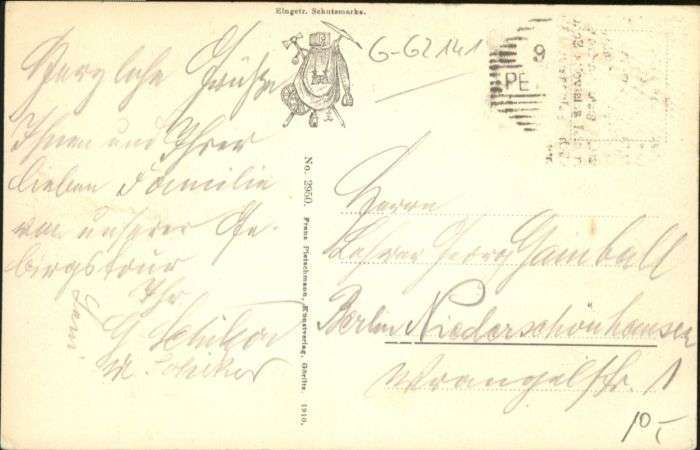 Eingetr. Schutzmarke.
G-G2141
9
PE
Herzliche Grüße
Ihnen und Ihrer
lieben Familie
von unserer Ge-
birgstour
Ihr
G. Schikor
No. 2950. Franz Pietschmann, Kunstverlag, Görlitz. 1910.
Herrn
Lehrer Georg
Berlin Niederschönhausen
Wrangelstr. 1
10,-